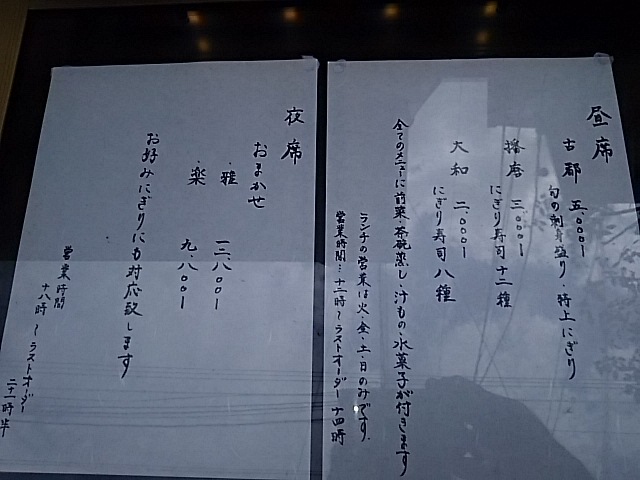 昼席
古都 五、〇〇〇ー
旬の刺身盛り・特上にぎり
播磨 三、〇〇〇ー
にぎり寿司十二種
大和 二、〇〇〇ー
にぎり寿司八種
全てのメニューに前菜・茶碗蒸し・汁もの・水菓子が付きます
ランチの営業は火・金・土・日のみです。
営業時間…十二時〜ラストオーダー十四時
夜席
おまかせ
・雅 一三、八〇〇ー
・楽 九、八〇〇ー
お好みにぎりにも対応致します
営業時間
十八時〜ラストオーダー
二十一時半